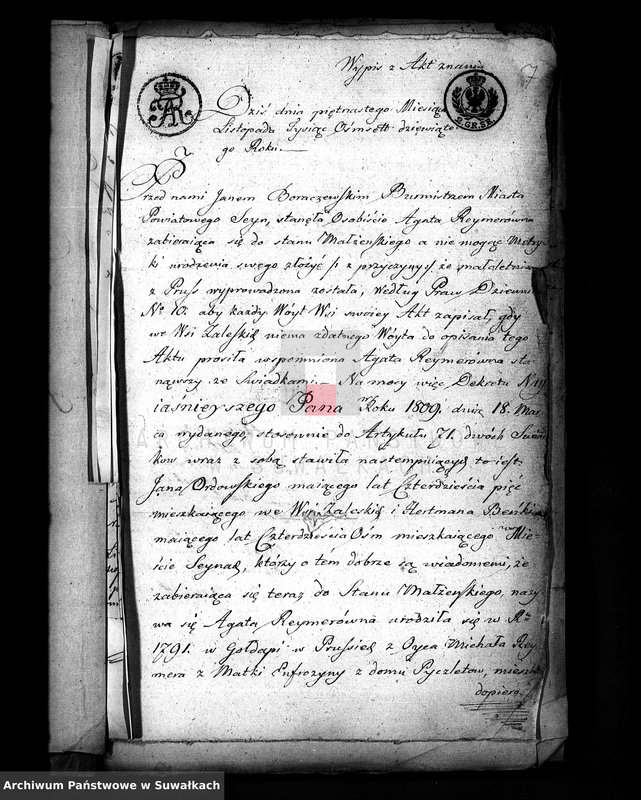 Wypis z Akt znania
Dziś dnia piętnastego Miesiąca
Listopada Tysiąc Ośmset dziewiąte
go Roku.
2. GR. SR.
Przed nami Janem Burmistrzem Miasta
Powiatowego Seyn, stanęła Osobiście Agata Reymerówna
zabieraiąca się do stanu Małżeńskiego a nie mogąc Metry
ki urodzenia swego złożyć z przyczyny że małoletnią
z Pruss wyprowadzona została, według Praw Dziennik
No 10. aby każdy Wóyt Wsi swoiey Akt zapisał, gdy
we Wsi Zaleskié niema zdatnego Wóyta do opisania tego
Aktu prosiła wspomniona Agata Reymerówna sta
nąwszy ze Swiadkami. Na mocy więc Dekretu Nay
iaśnieyszego Pana Roku 1809. dnia 18. Mar
ca wydanego, stosownie do Artykułu 71. dwóch Swiad
ków wraz z sobą stawiła następuiących to iest
Jana Ordowskiego maiącego lat Czterdzieścia pięć
mieszkaiącego we Wsi Zaleskié i Hertmana
maiącego lat Czterdzieścia Ośm mieszkaiącego w Mie
ście Seynach, którzy o tém dobrze są wiadomemi, że
zabieraiąca się teraz do Stanu Małżeńskiego, nazy
wa się Agata Reymerówna urodziła się w Ru
1791. w Gołdapi w Prussiech z Oyca Michała Rey
mera z Matki Eufrozyny z domu Pyczletow, mieszka
dopiero
Archiwum Państwowe w Suwałkach